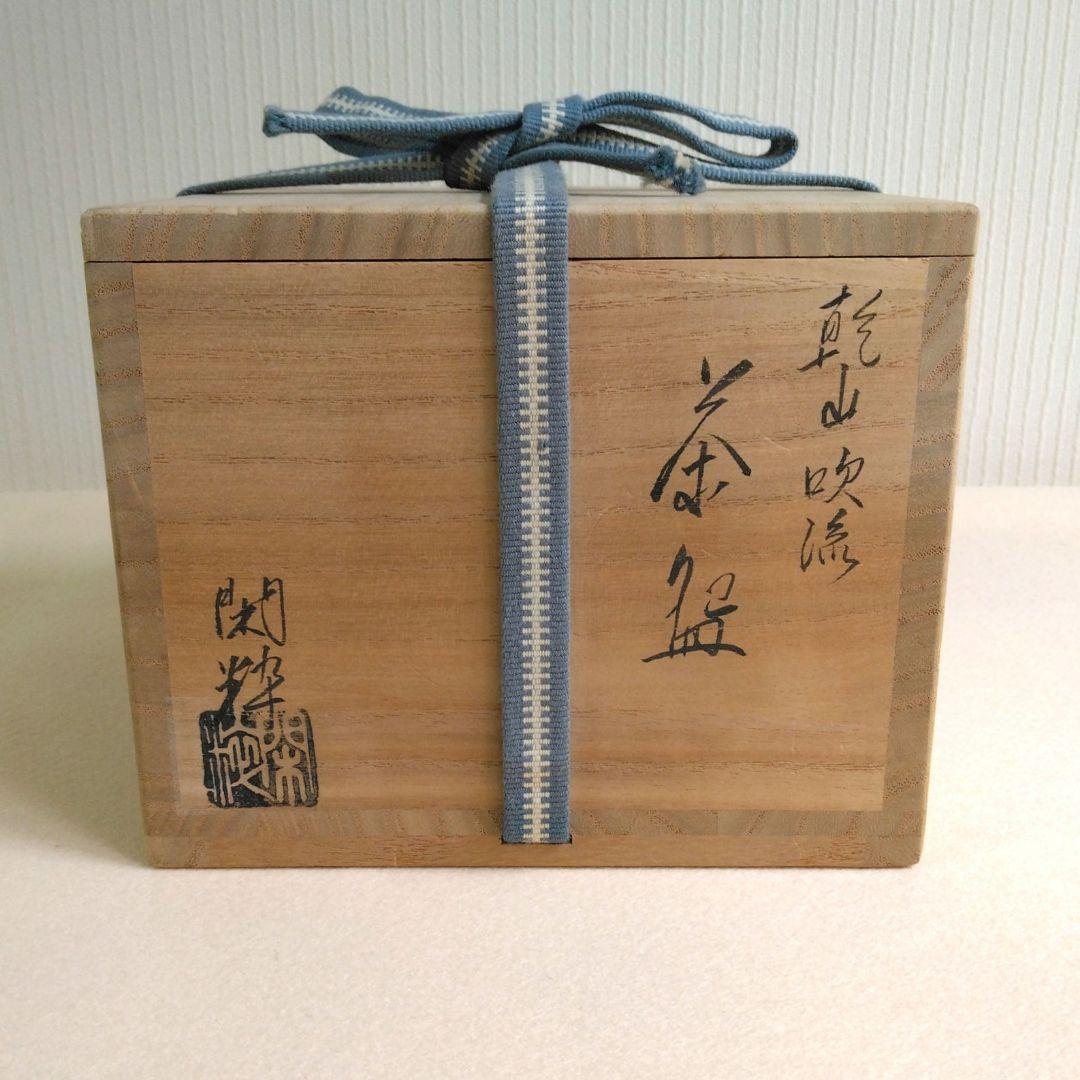 乾山 吹流
茶盌
閑粋